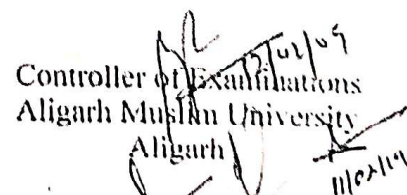 Controller of Examinations
Aligarh Muslim University
Aligarh